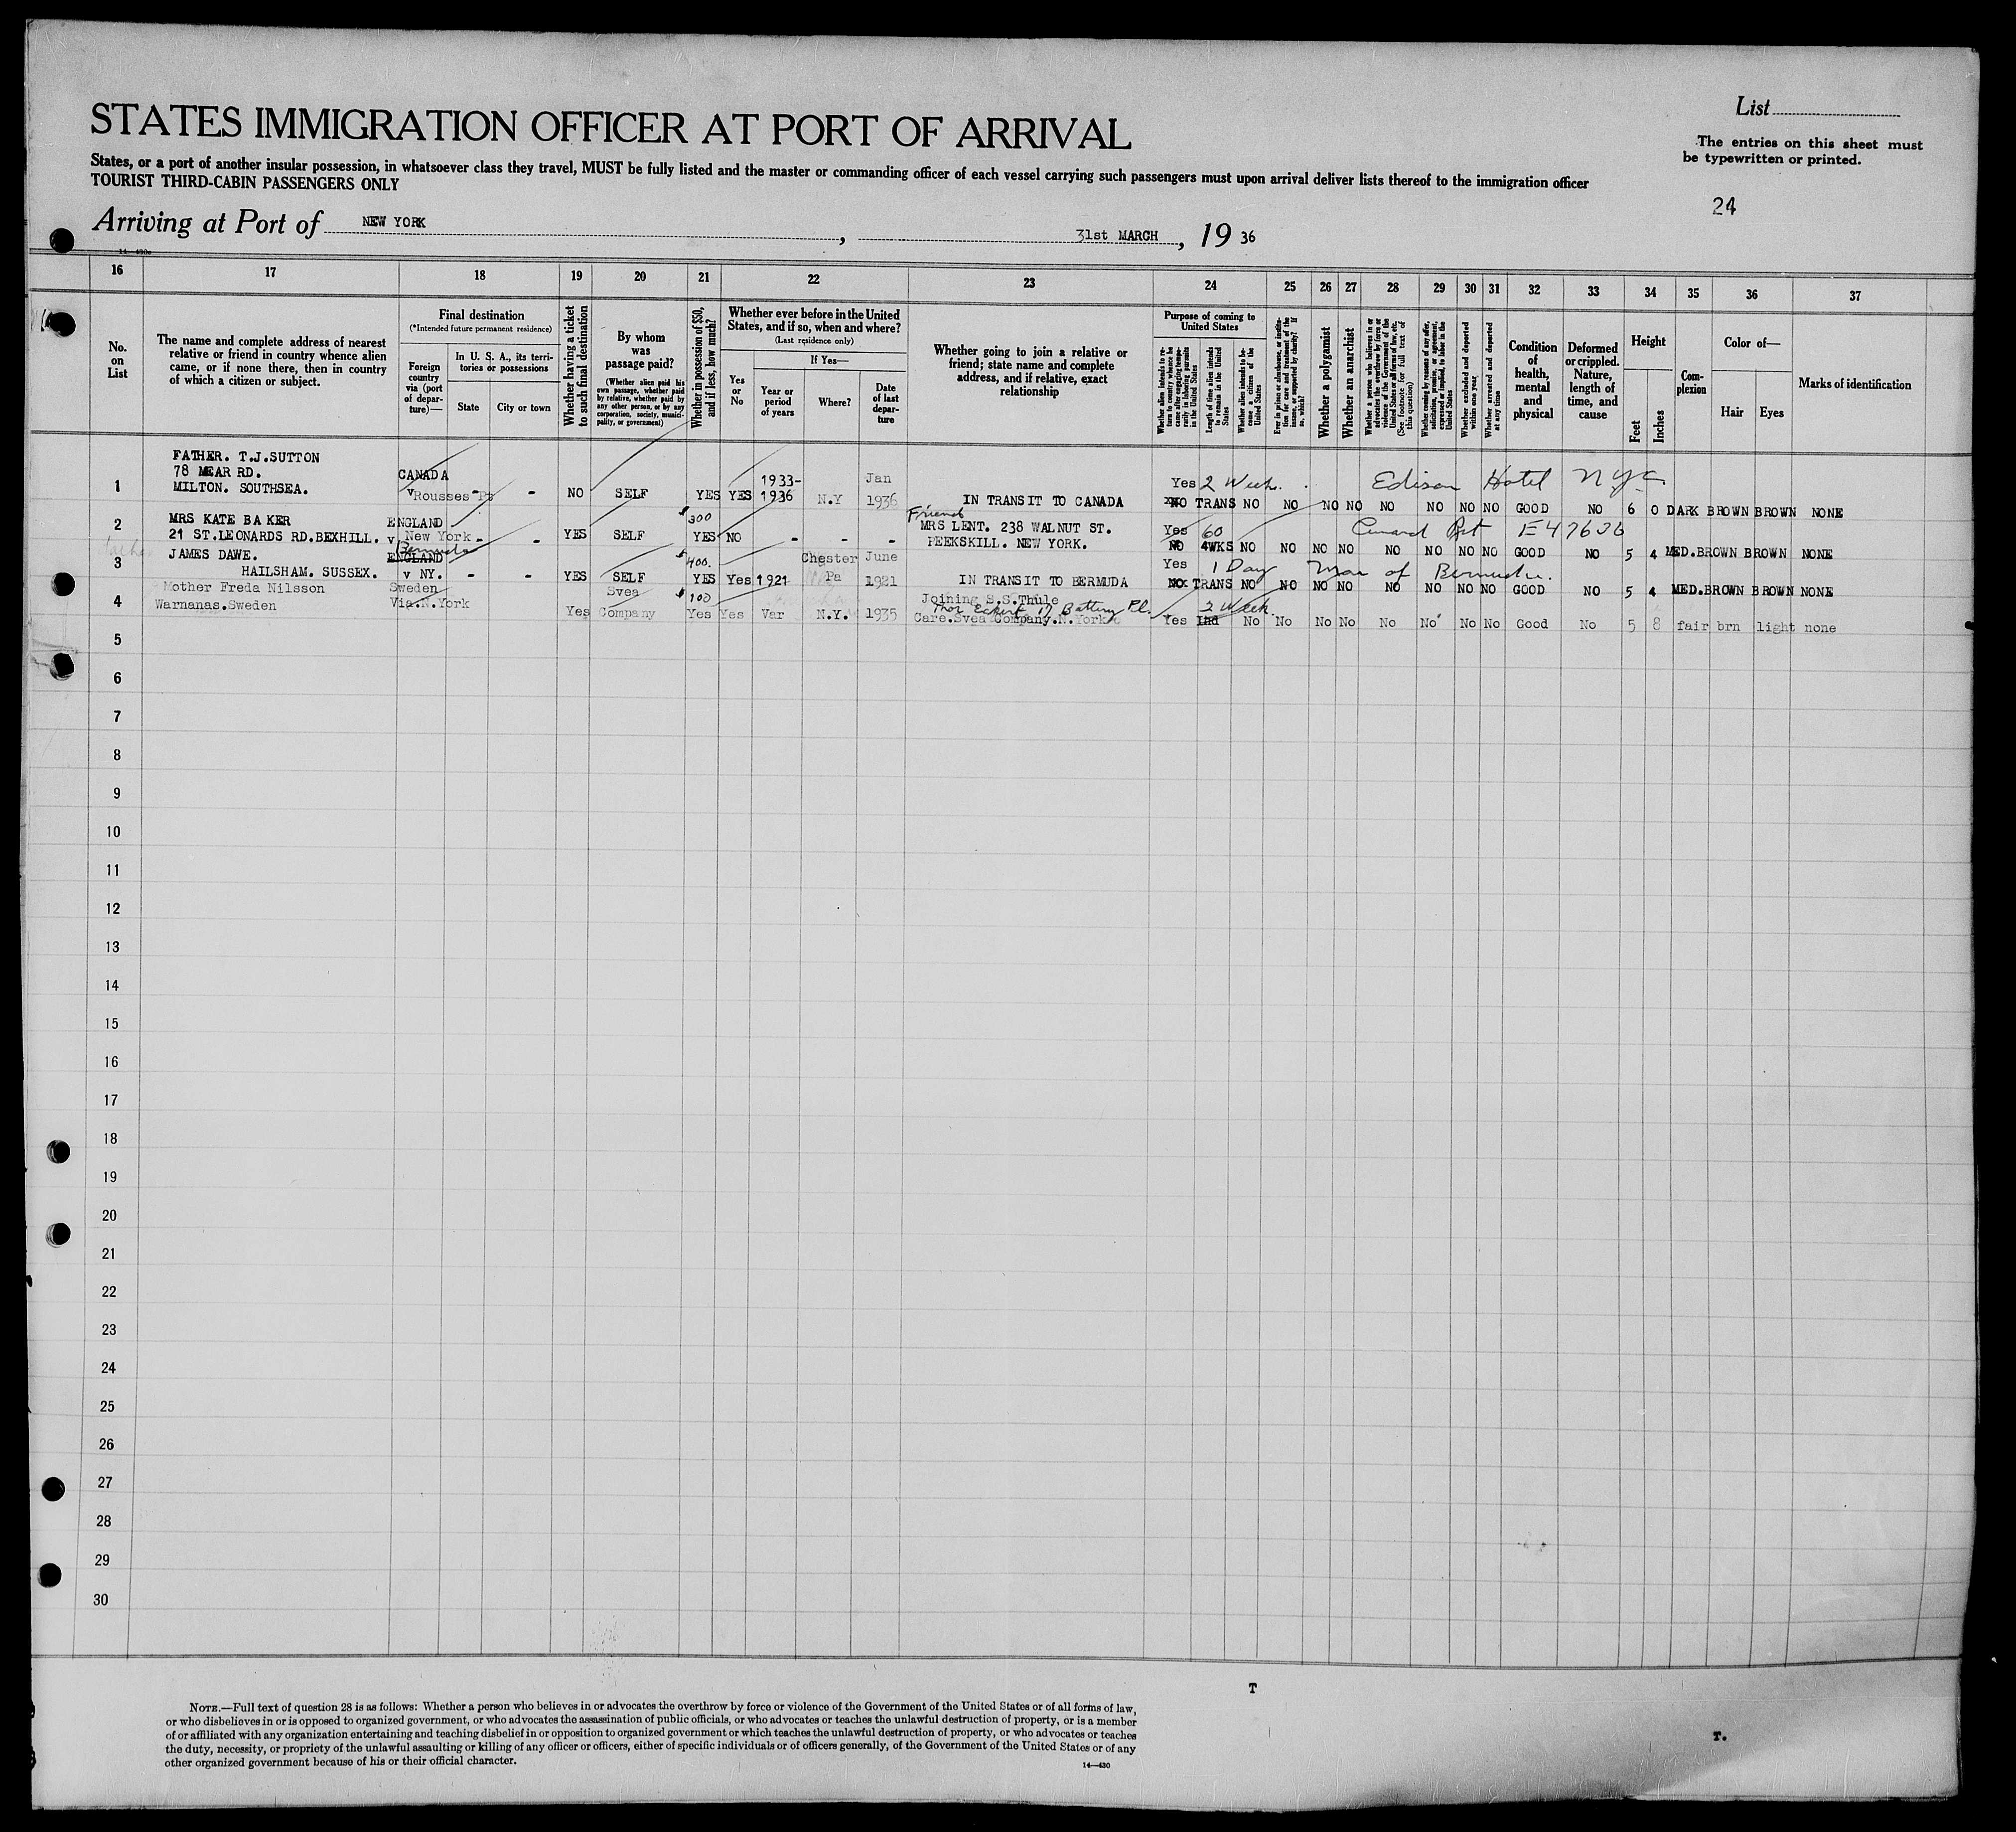 STATES IMMIGRATION OFFICER AT PORT OF ARRIVAL
List
The entries on this sheet must
be typewritten or printed.
States, or a port of another insular possession, in whatsoever class they travel, MUST be fully listed and the master or commanding officer of each vessel carrying such passengers must upon arrival deliver lists thereof to the immigration officer
TOURIST THIRD-CABIN PASSENGERS ONLY
24
Arriving at Port of NEW YORK, 31st MARCH, 19 36
14—430c
16 17 18 19 20 21 22 23 24 25 26 27 28 29 30 31 32 33 34 35 36 37
No.
on
List
The name and complete address of nearest
relative or friend in country whence alien
came, or if none there, then in country
of which a citizen or subject.
Final destination
(*Intended future permanent residence)
Foreign
country
via (port
of depar-
ture)—
In U. S. A., its terri-
tories or possessions
State
City or town
Whether having a ticket
to such final destination
By whom
was
passage paid?
(Whether alien paid his
own passage, whether paid
by relative, whether paid by
any other person, or by any
corporation, society, munici-
pality, or government)
Whether in possession of $50,
and if less, how much?
Whether ever before in the United
States, and if so, when and where?
(Last residence only)
Yes
or
No
If Yes—
Year or
period
of years
Where?
Date
of last
depar-
ture
Whether going to join a relative or
friend; state name and complete
address, and if relative, exact
relationship
Purpose of coming to
United States
Whether alien intends to re-
turn to country whence he
came after engaging tempo-
rarily in laboring pursuits
in the United States
Length of time alien intends
to remain in the United
States
Whether alien intends to be-
come a citizen of the
United States
Ever in prison or almshouse, or institu-
tion for care and treatment of the
insane, or supported by charity? If
so, which?
Whether a polygamist
Whether an anarchist
Whether a person who believes in or
advocates the overthrow by force or
violence of the Government of the
United States or all forms of law, etc.
(See footnote for full text of
this question)
Whether coming by reasons of any offer,
solicitation, promise, or agreement,
expressed or implied, to labor in the
United States
Whether excluded and deported
within one year
Whether arrested and deported
at any time
Condition
of
health,
mental
and
physical
Deformed
or crippled.
Nature,
length of
time, and
cause
Height
Feet
Inches
Com-
plexion
Color of—
Hair
Eyes
Marks of identification
FATHER. T.J.SUTTON
78 MEAR RD. CANADA 1933- Jan Yes 2 Week. Edison Hotel NYC
1 MILTON. SOUTHSEA. v Rousses Pt - NO SELF YES YES 1936 N.Y 1936 IN TRANSIT TO CANADA NO TRANS NO NO NO NO NO NO NO NO GOOD NO 6 0 DARK BROWN BROWN NONE
$300 Friend
2 MRS KATE BAKER ENGLAND MRS LENT. 238 WALNUT ST. Yes 60 Cunard
21 ST.LEONARDS RD.BEXHILL. v New York - - YES SELF YES NO - - - PEEKSKILL. NEW YORK. NO 4WKS NO NO NO NO NO NO NO NO GOOD NO 5 4 MED.BROWN BROWN NONE
Bermuda
3 JAMES DAWE. ENGLAND $400. Chester June Yes 1 Day of Bermuda.
HAILSHAM. SUSSEX. v NY. - - YES SELF YES Yes 1921 Pa 1921 IN TRANSIT TO BERMUDA NO TRANS NO NO NO NO NO NO NO NO GOOD NO 5 4 MED.BROWN BROWN NONE
Mother Freda Nilsson Sweden Svea $100 Joining S.S.Thule
Thor Eckert 17 Battery Pl. 2 Week.
4 Warnanas.Sweden Via.N.York Yes Company Yes Yes Var N.Y. 1935 Care.Svea Company.N.York Yes Ind No No No No No No No No Good No 5 8 fair brn light none
5
6
7
8
9
10
11
12
13
14
15
16
17
18
19
20
21
22
23
24
25
26
27
28
29
30
T
T.
NOTE.—Full text of question 28 is as follows: Whether a person who believes in or advocates the overthrow by force or violence of the Government of the United States or of all forms of law,
or who disbelieves in or is opposed to organized government, or who advocates the assassination of public officials, or who advocates or teaches the unlawful destruction of property, or is a member
of or affiliated with any organization entertaining and teaching disbelief in or opposition to organized government or which teaches the unlawful destruction of property, or who advocates or teaches
the duty, necessity, or propriety of the unlawful assaulting or killing of any officer or officers, either of specific individuals or of officers generally, of the Government of the United States or of any
other organized government because of his or their official character.
14—430